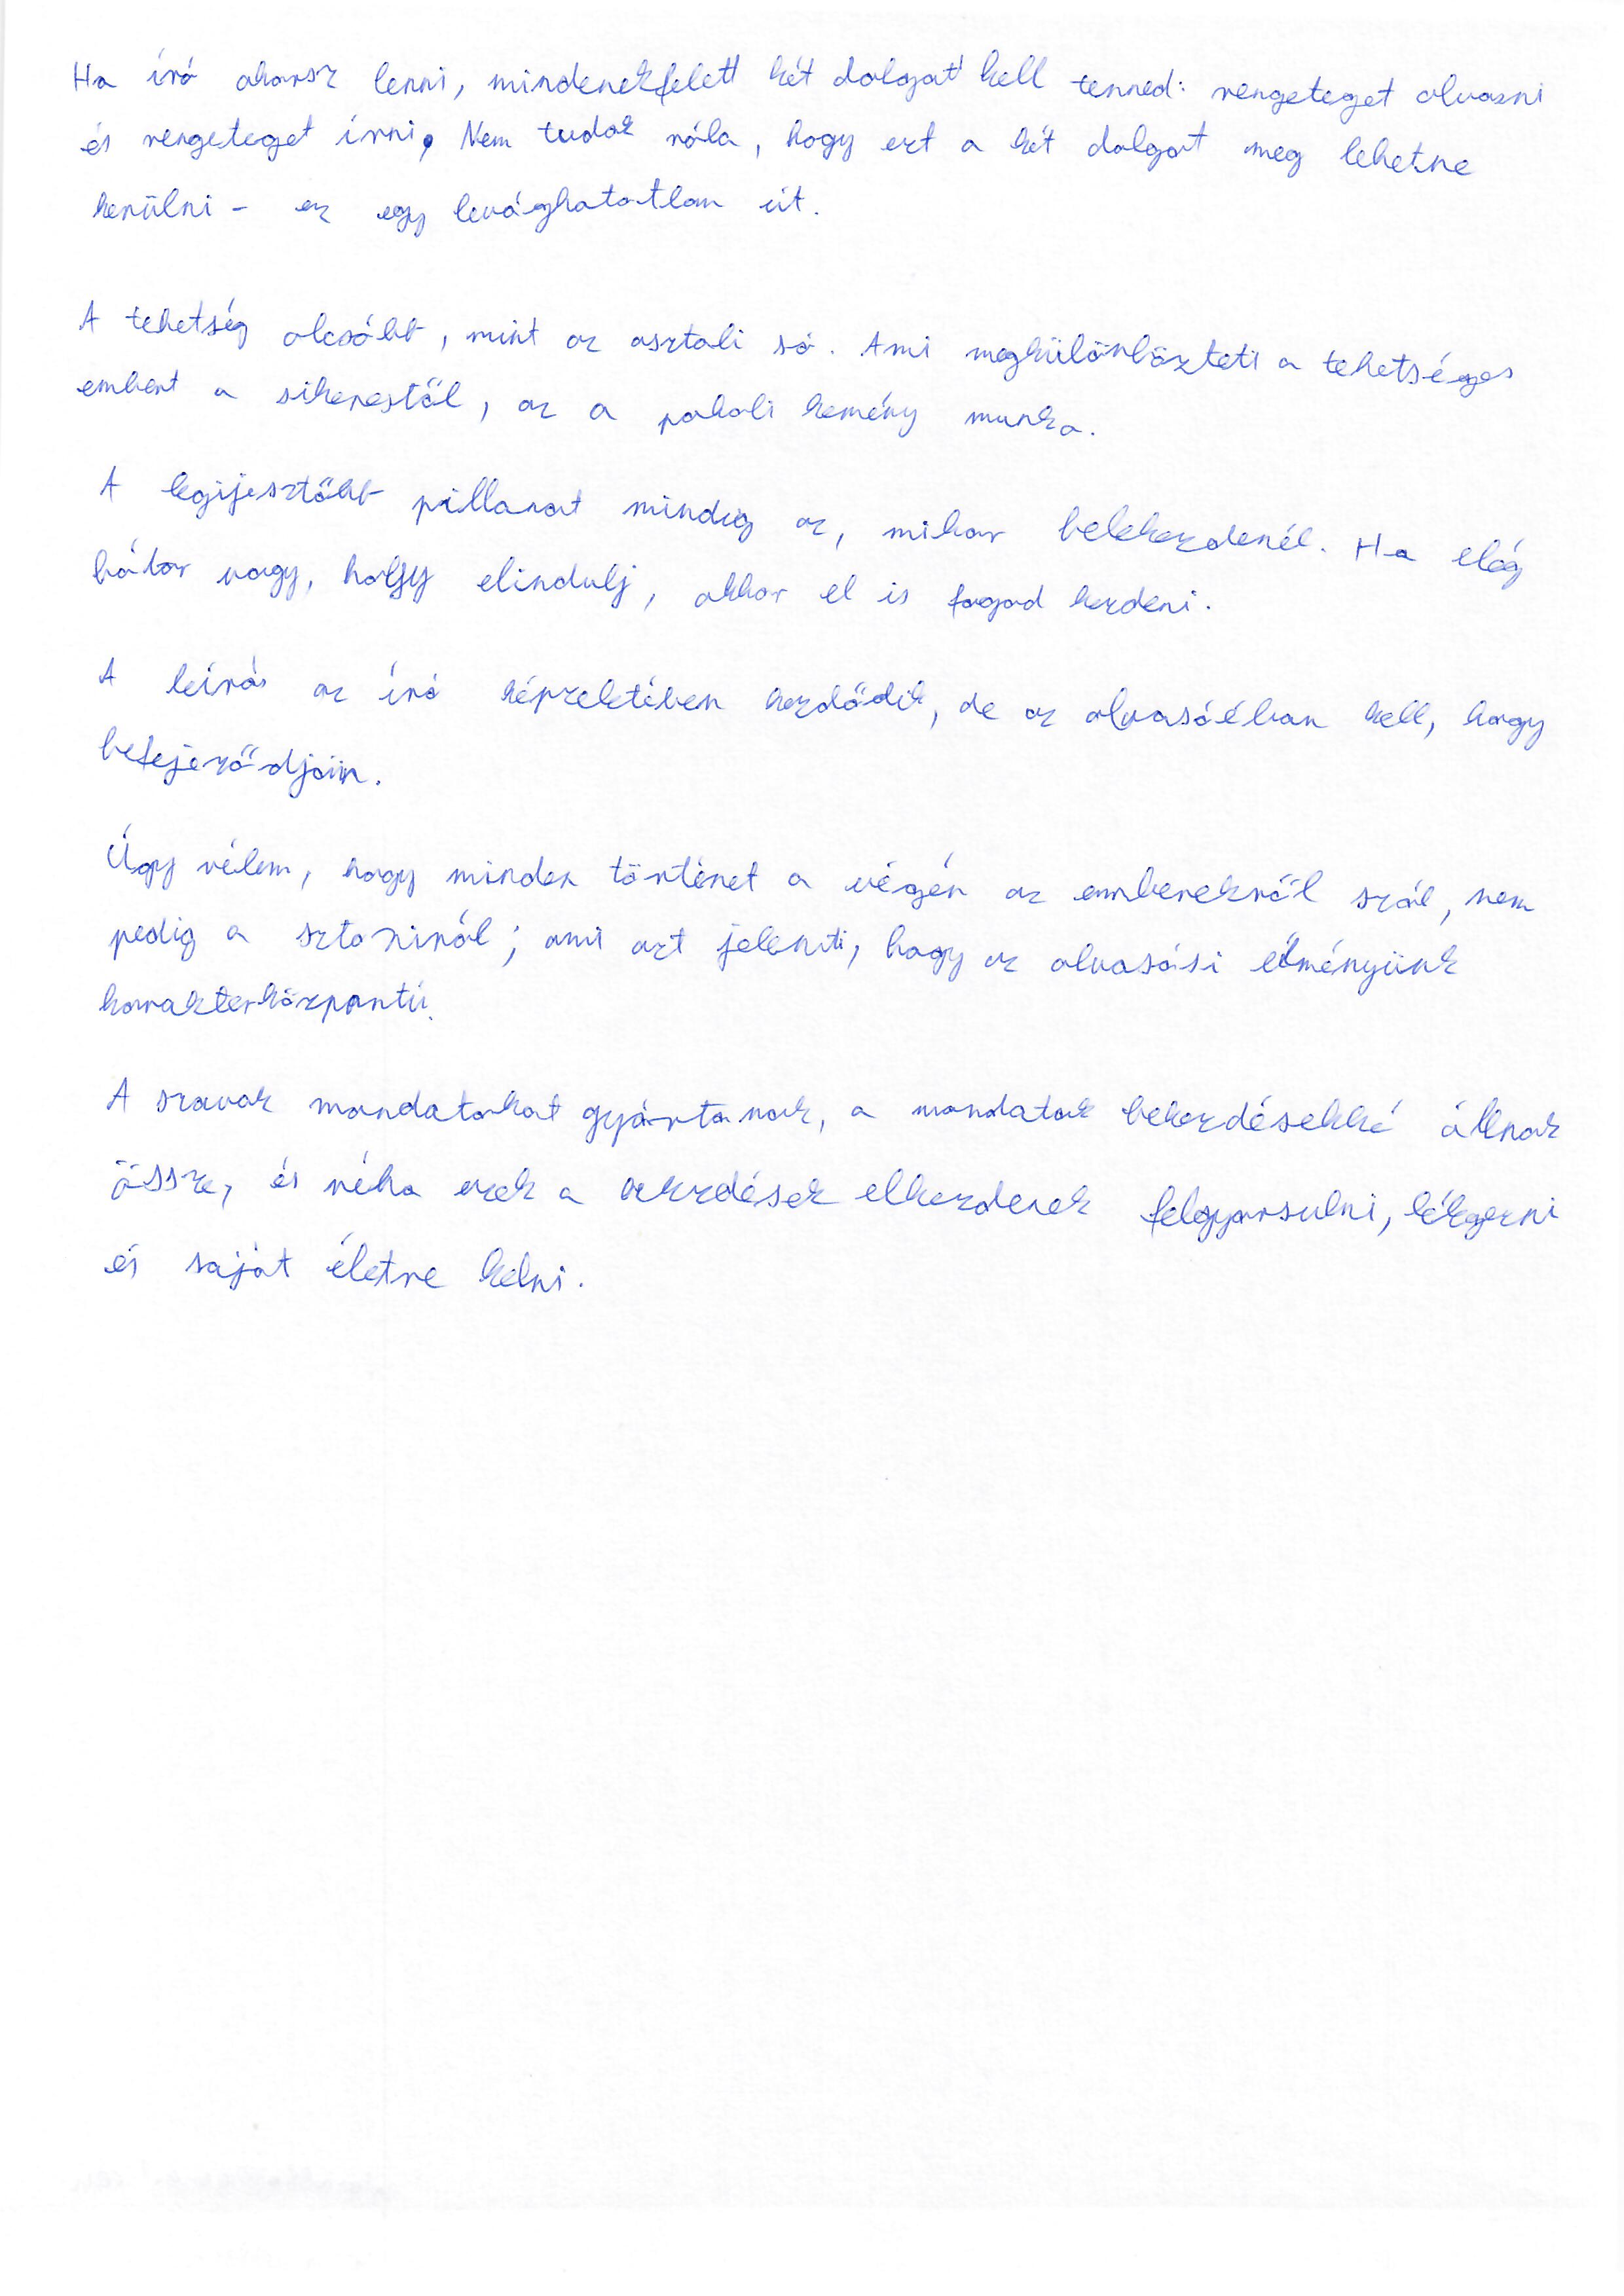 Ha író akarsz lenni, mindenekfelett két dolgot kell tenned: rengeteget olvasni
és rengeteget írni. Nem tudok róla, hogy ezt a két dolgot meg lehetne
kerülni - ez egy levághatatlan út.
A tehetség olcsóbb, mint az asztali só. Ami megkülönbözteti a tehetséges
embert a sikerestől, az a pokoli kemény munka.
A legijesztőbb pillanat mindig az, mikor belekezdenél. Ha elég
bátor vagy, hogy elindulj, akkor el is fogod kezdeni.
A leírás az író képzeletében kezdődik, de az olvasóéban kell, hogy
befejeződjön.
Úgy vélem, hogy minden történet a végén az emberekről szól, nem
pedig a sztoriról; ami azt jelenti, hogy az olvasási élményünk
karakterközpontú.
A szavak mondatokat gyártanak, a mondatok bekezdésekké állnak
össze, és néha ezek a bekezdések elkezdenek felgyorsulni, lélegezni
és saját életre kelni.